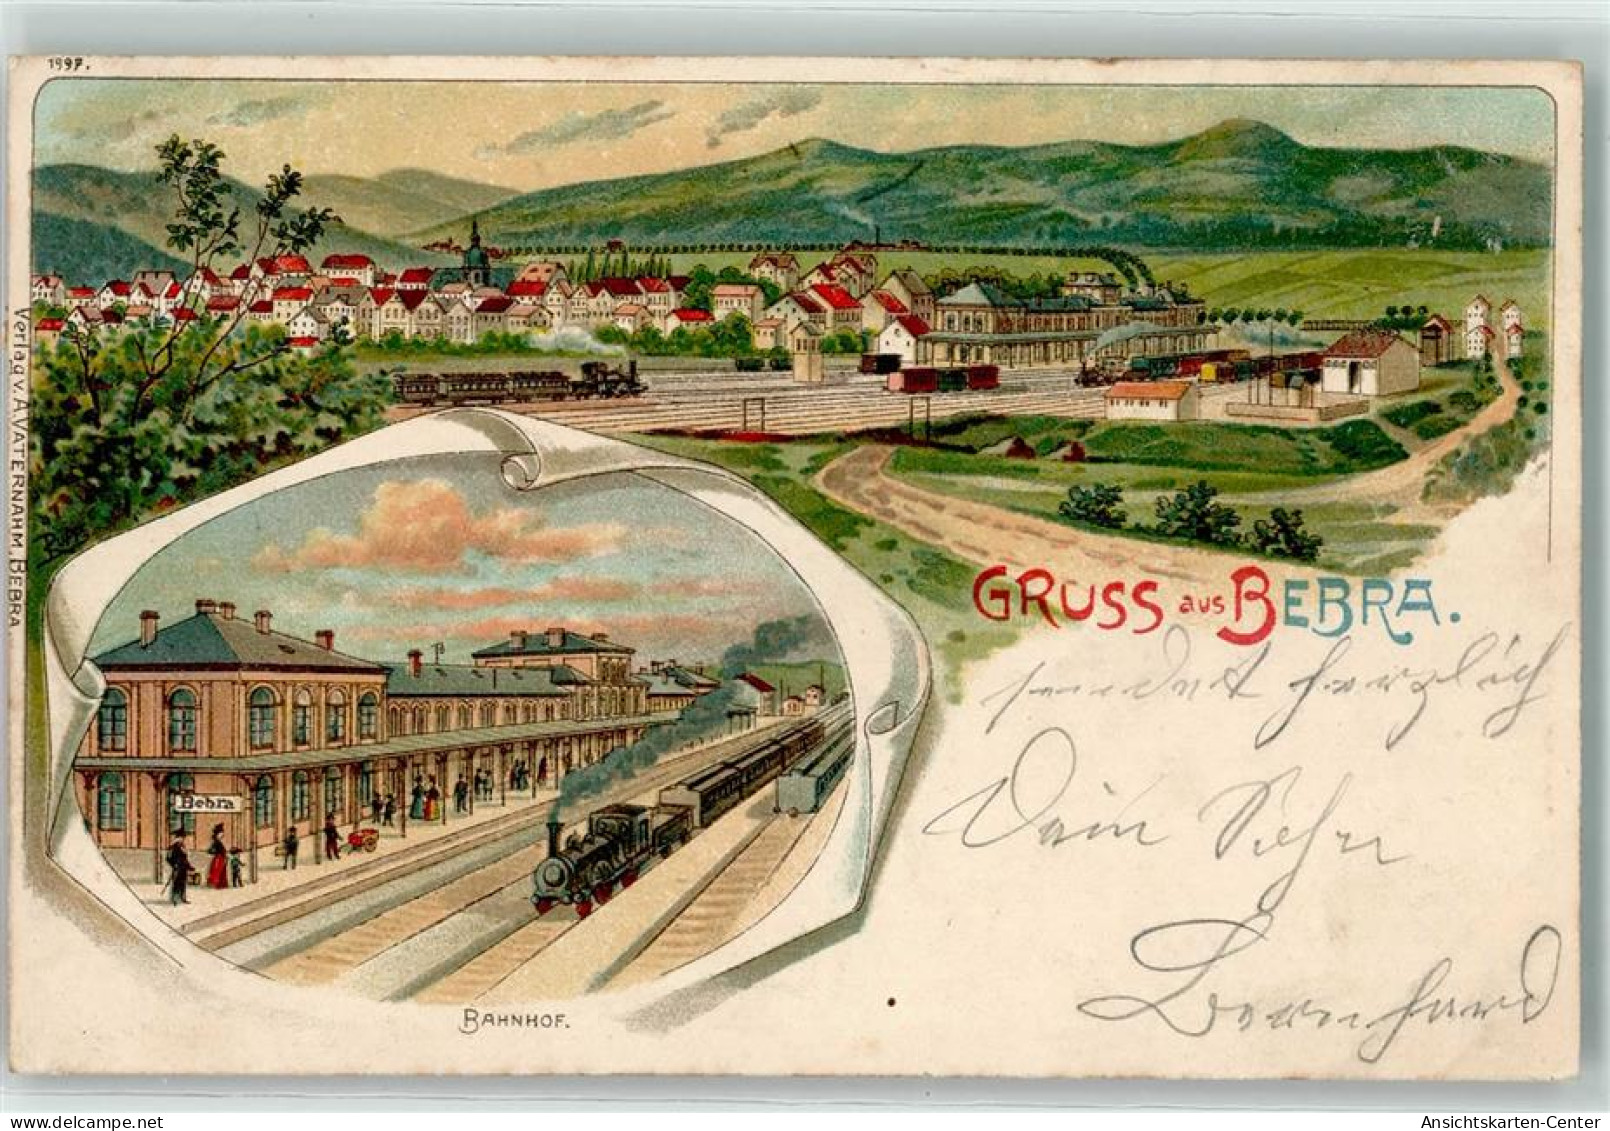 1997.
Verlag v. A. VATERNAHM, BEBRA.
GRUSS aus BEBRA.
sendet herzlich
Dein
Bernhard
Bebra
BAHNHOF.
Ansichtskarten-Center